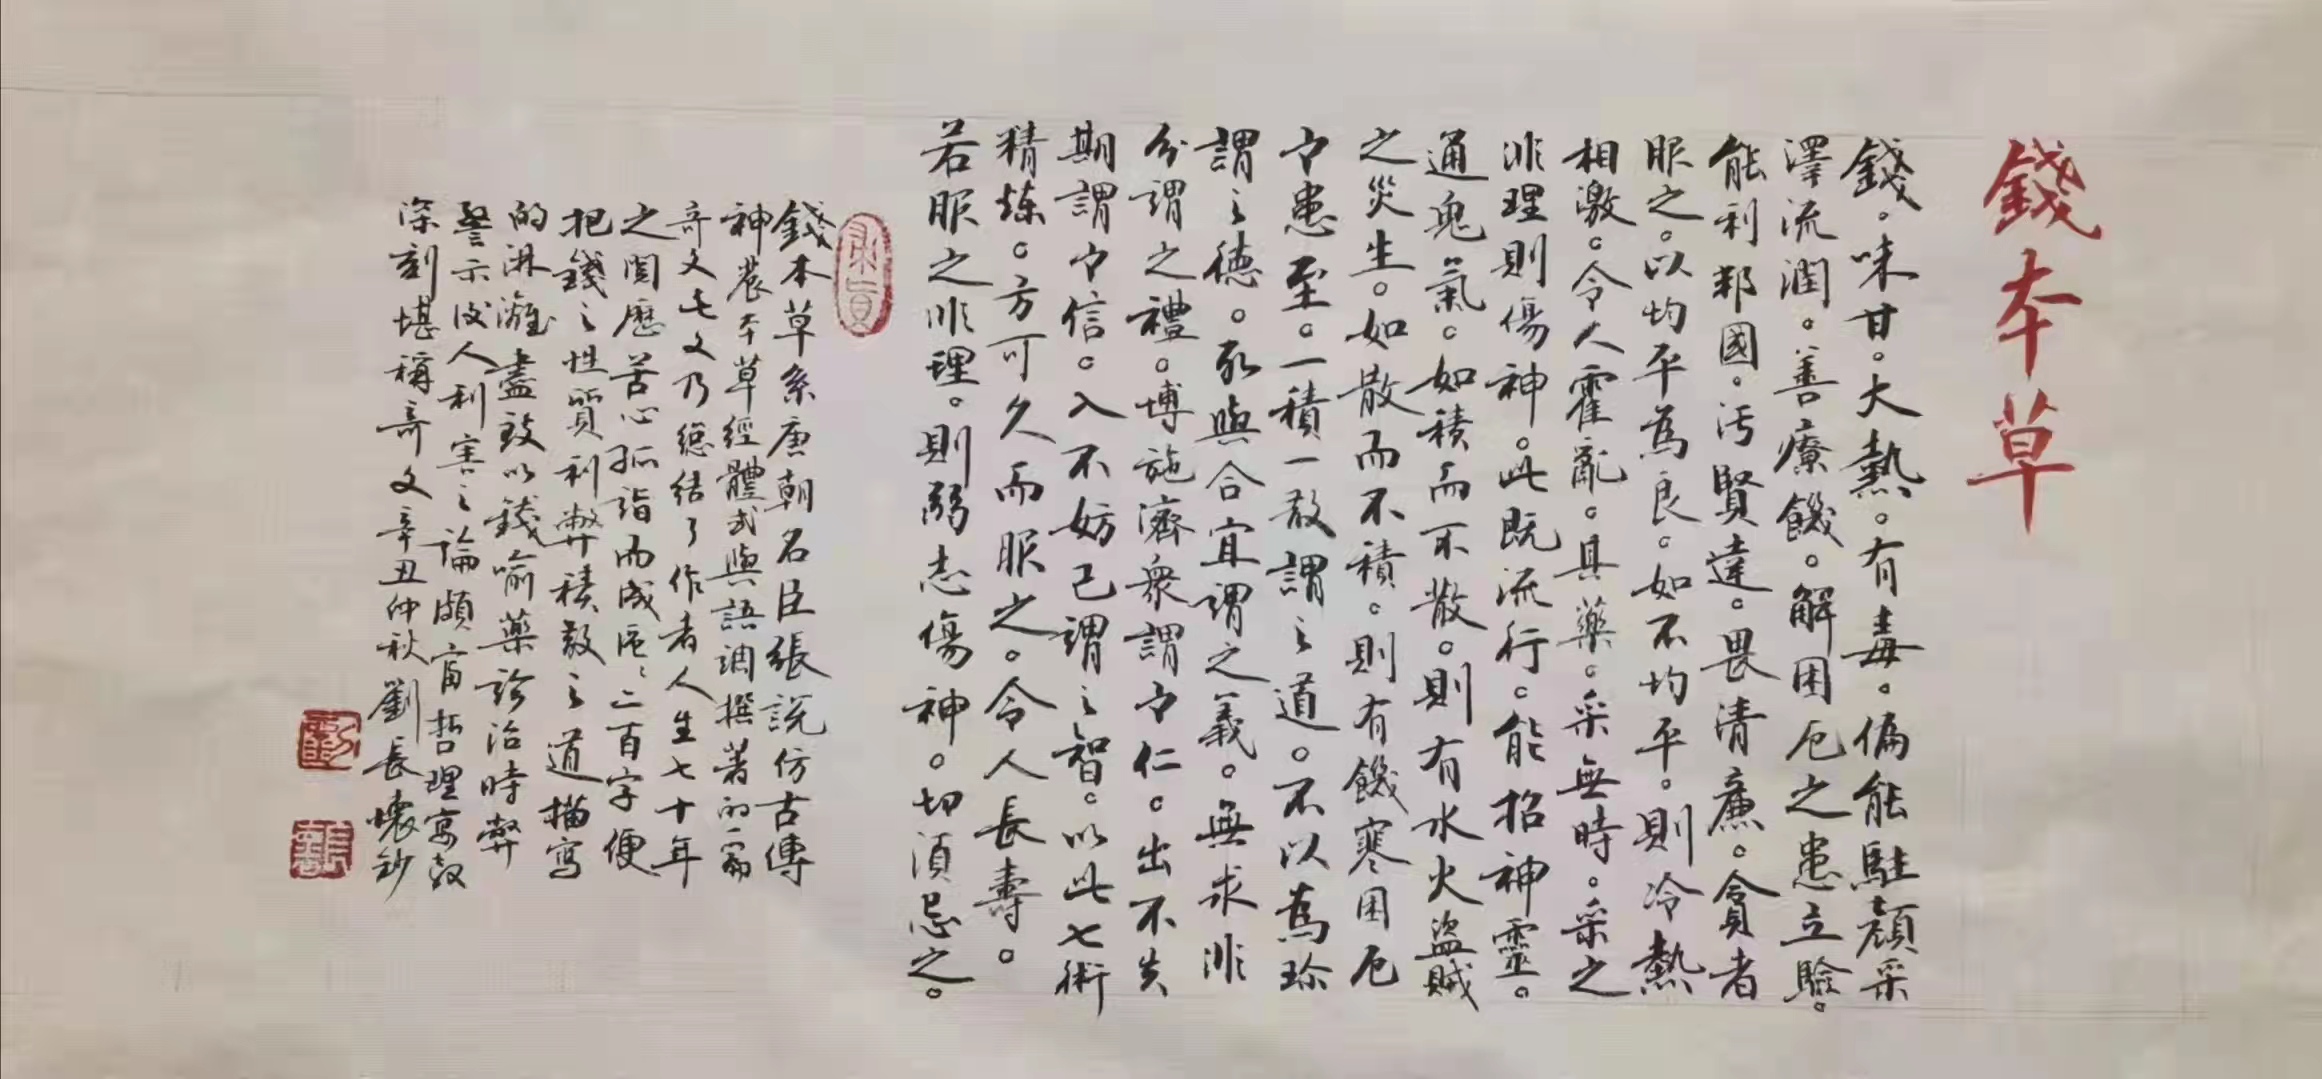 錢本草
錢。味甘。大熱。有毒。偏能駐顏采
澤流潤。善療饑。解困厄之患立驗。
能利邦國。污賢達。畏清廉。貪者
服之。以均平為良。如不均平。則冷熱
相激。令人霍亂。其藥。采無時。采之
非理則傷神。此既流行。能招神靈。
通鬼氣。如積而不散。則有水火盜賊
之災生。如散而不積。則有饑寒困厄
之患至。一積一散謂之道。不以為珍
謂之德。取與合宜謂之義。無求非
分謂之禮。博施濟衆謂之仁。出不失
期謂之信。入不妨己謂之智。以此七術
精煉。方可久而服之。令人長壽。
若服之非理。則弱志傷神。切須忌之。
錢本草系唐朝名臣張說仿古傳
神農本草經體式與語調撰著的一篇
奇文此文乃總結了作者人生七十年
之閱歷苦心孤詣而成區區二百字便
把錢之性質利弊積散之道描寫
的淋漓盡致以錢喻藥診治時弊
警示後人利害之論頗富哲理寓教
深刻堪稱奇文辛丑仲秋劉長懷鈔